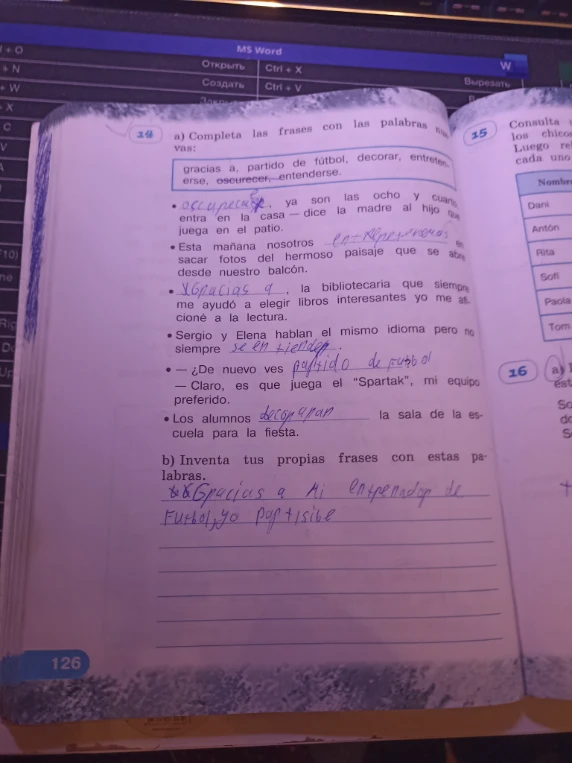 MS Word
W
+ O
Открыть
Ctrl + X
+ N
Создать
Ctrl + V
Вырезать
+ W
X
C
V
A
F10)
12
a) Completa las frases con las palabras
vas:
gracias a, partido de fútbol, decorar,
erse, oscurecer, entenderse.
ya son las ocho y
entra en la casa — dice la madre al hijo
juega en el patio.
• Esta mañana nosotros
sacar fotos del hermoso paisaje que se
desde nuestro balcón.
• Gracias a, la bibliotecaria que
me ayudó a elegir libros interesantes yo me
cioné a la lectura.
• Sergio y Elena hablan el mismo idioma pero
siempre se entienden.
• — ¿De nuevo ves partido de Futbol
— Claro, es que juega el "Spartak", mi equipo
preferido.
• Los alumnos decoraran la sala de la es-
cuela para la fiesta.
b) Inventa tus propias frases con estas pa-
labras.
Gracias a Mi entrenador de
Futbol, yo partisibe
126
15
Consulta
los
Luego
cada uno
Dani
Antón
Rita
Sofi
Paola
Tom
16
a)